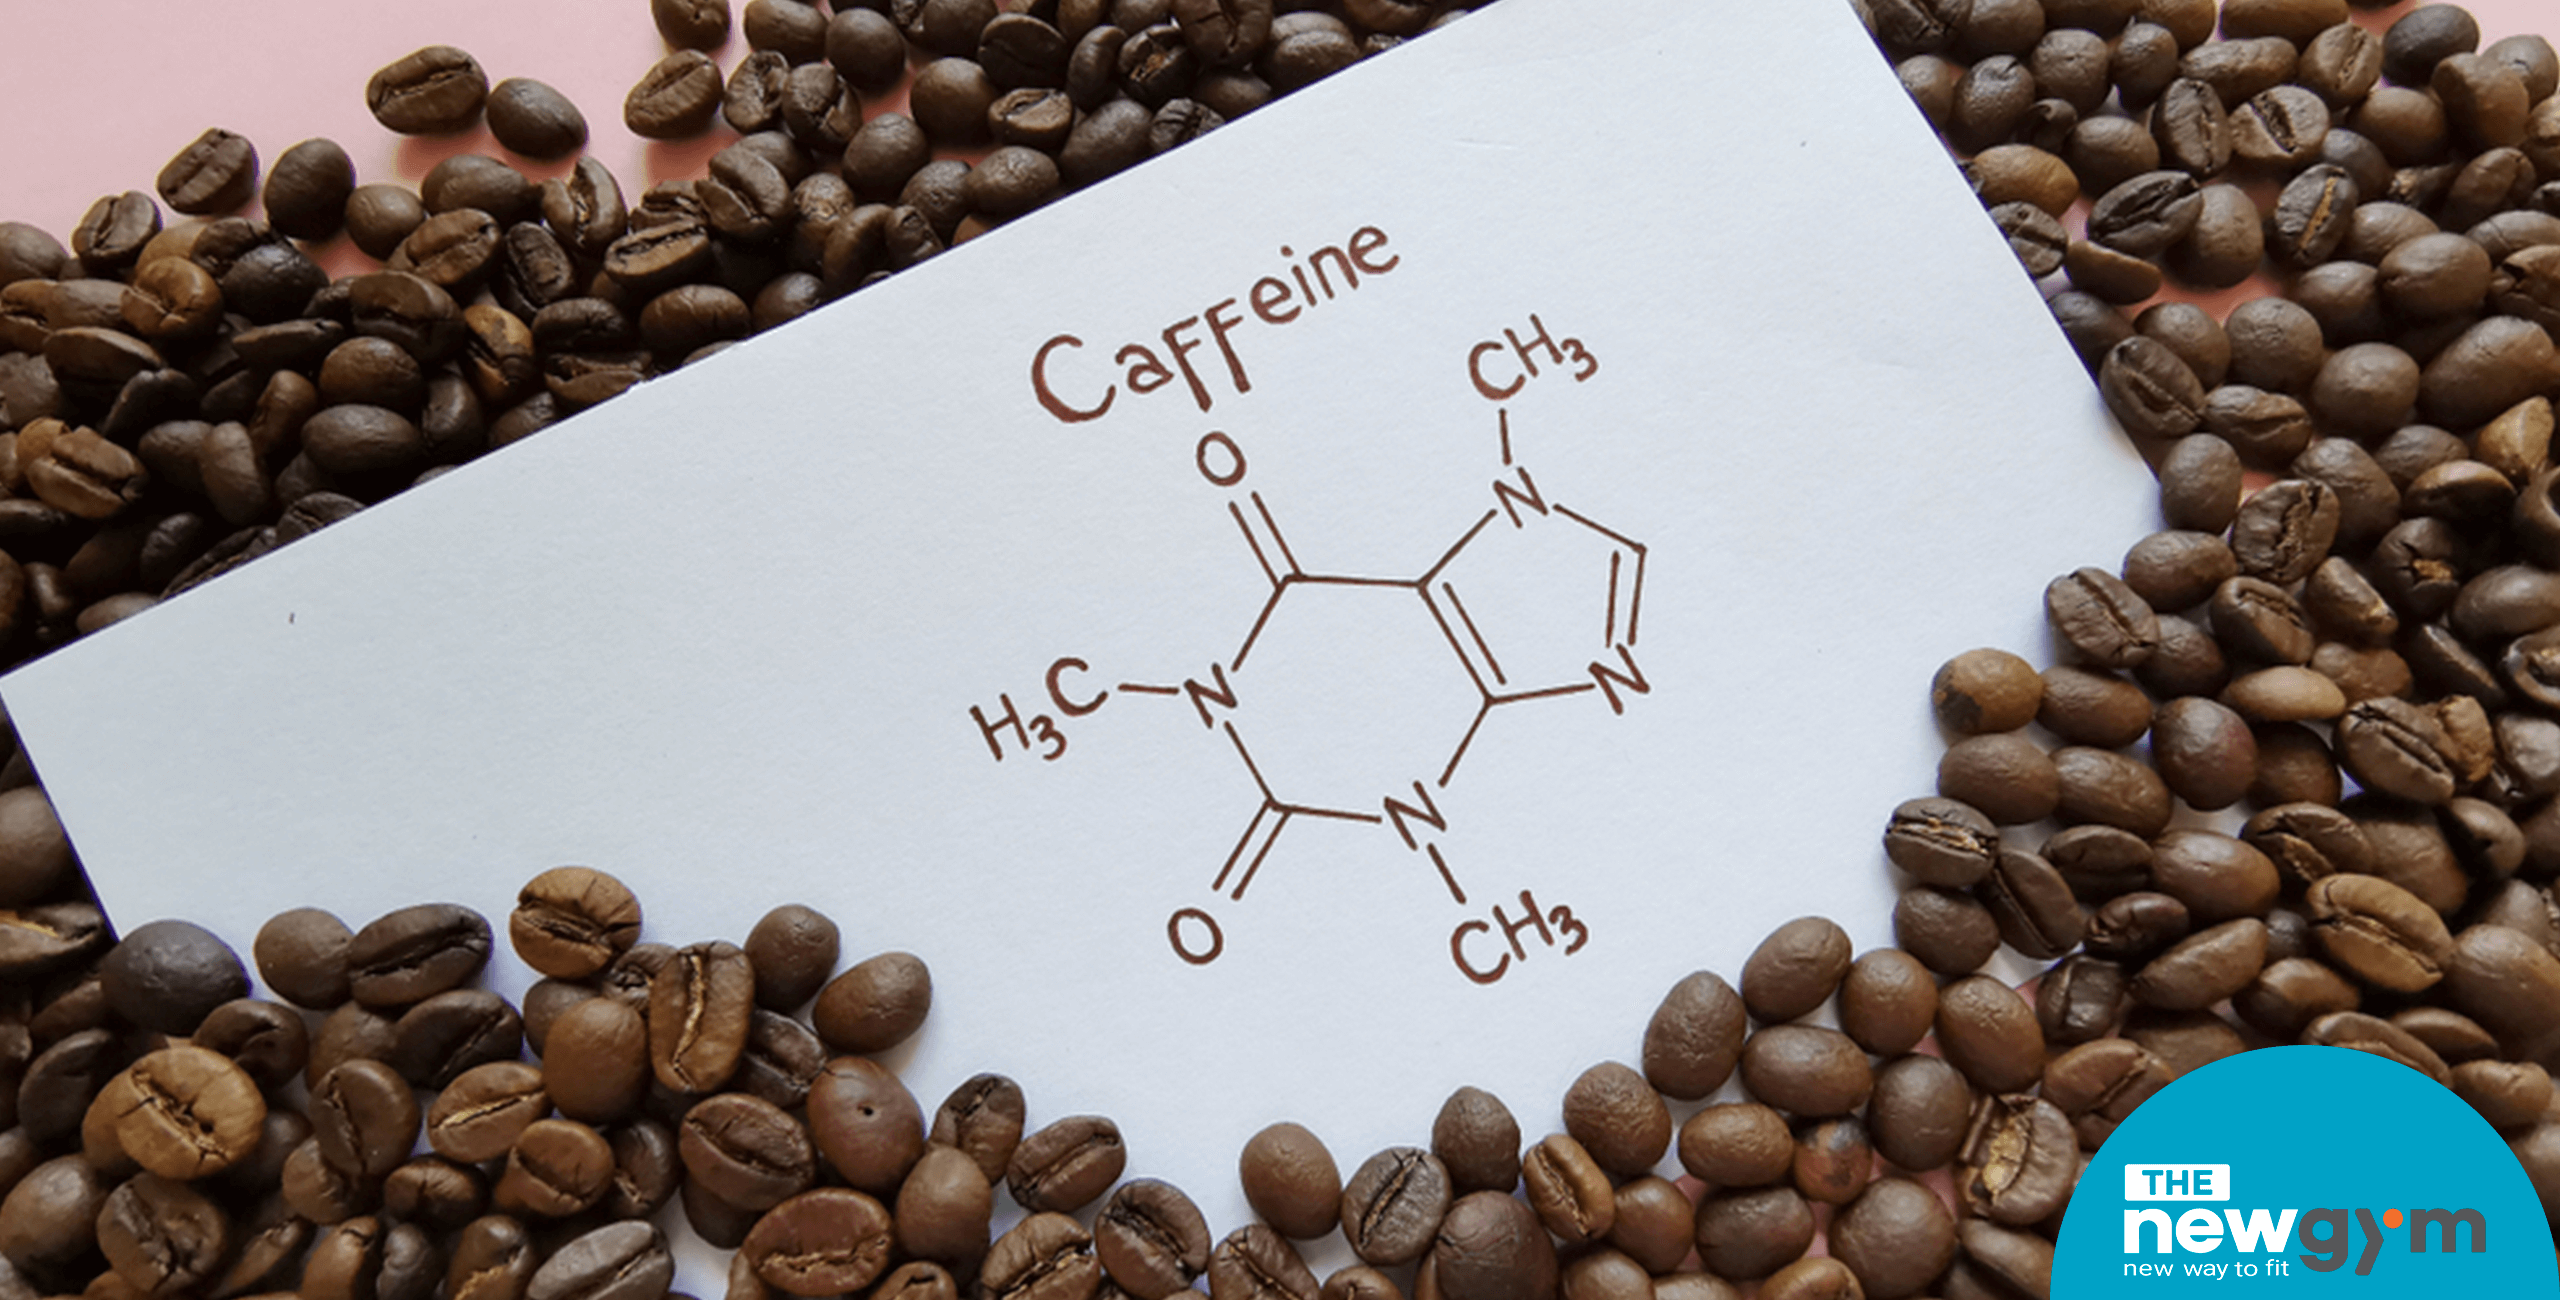 Caffeine
CH3
O
N
H3C
N
N
N
O
CH3
THE
newgym
new way to fit